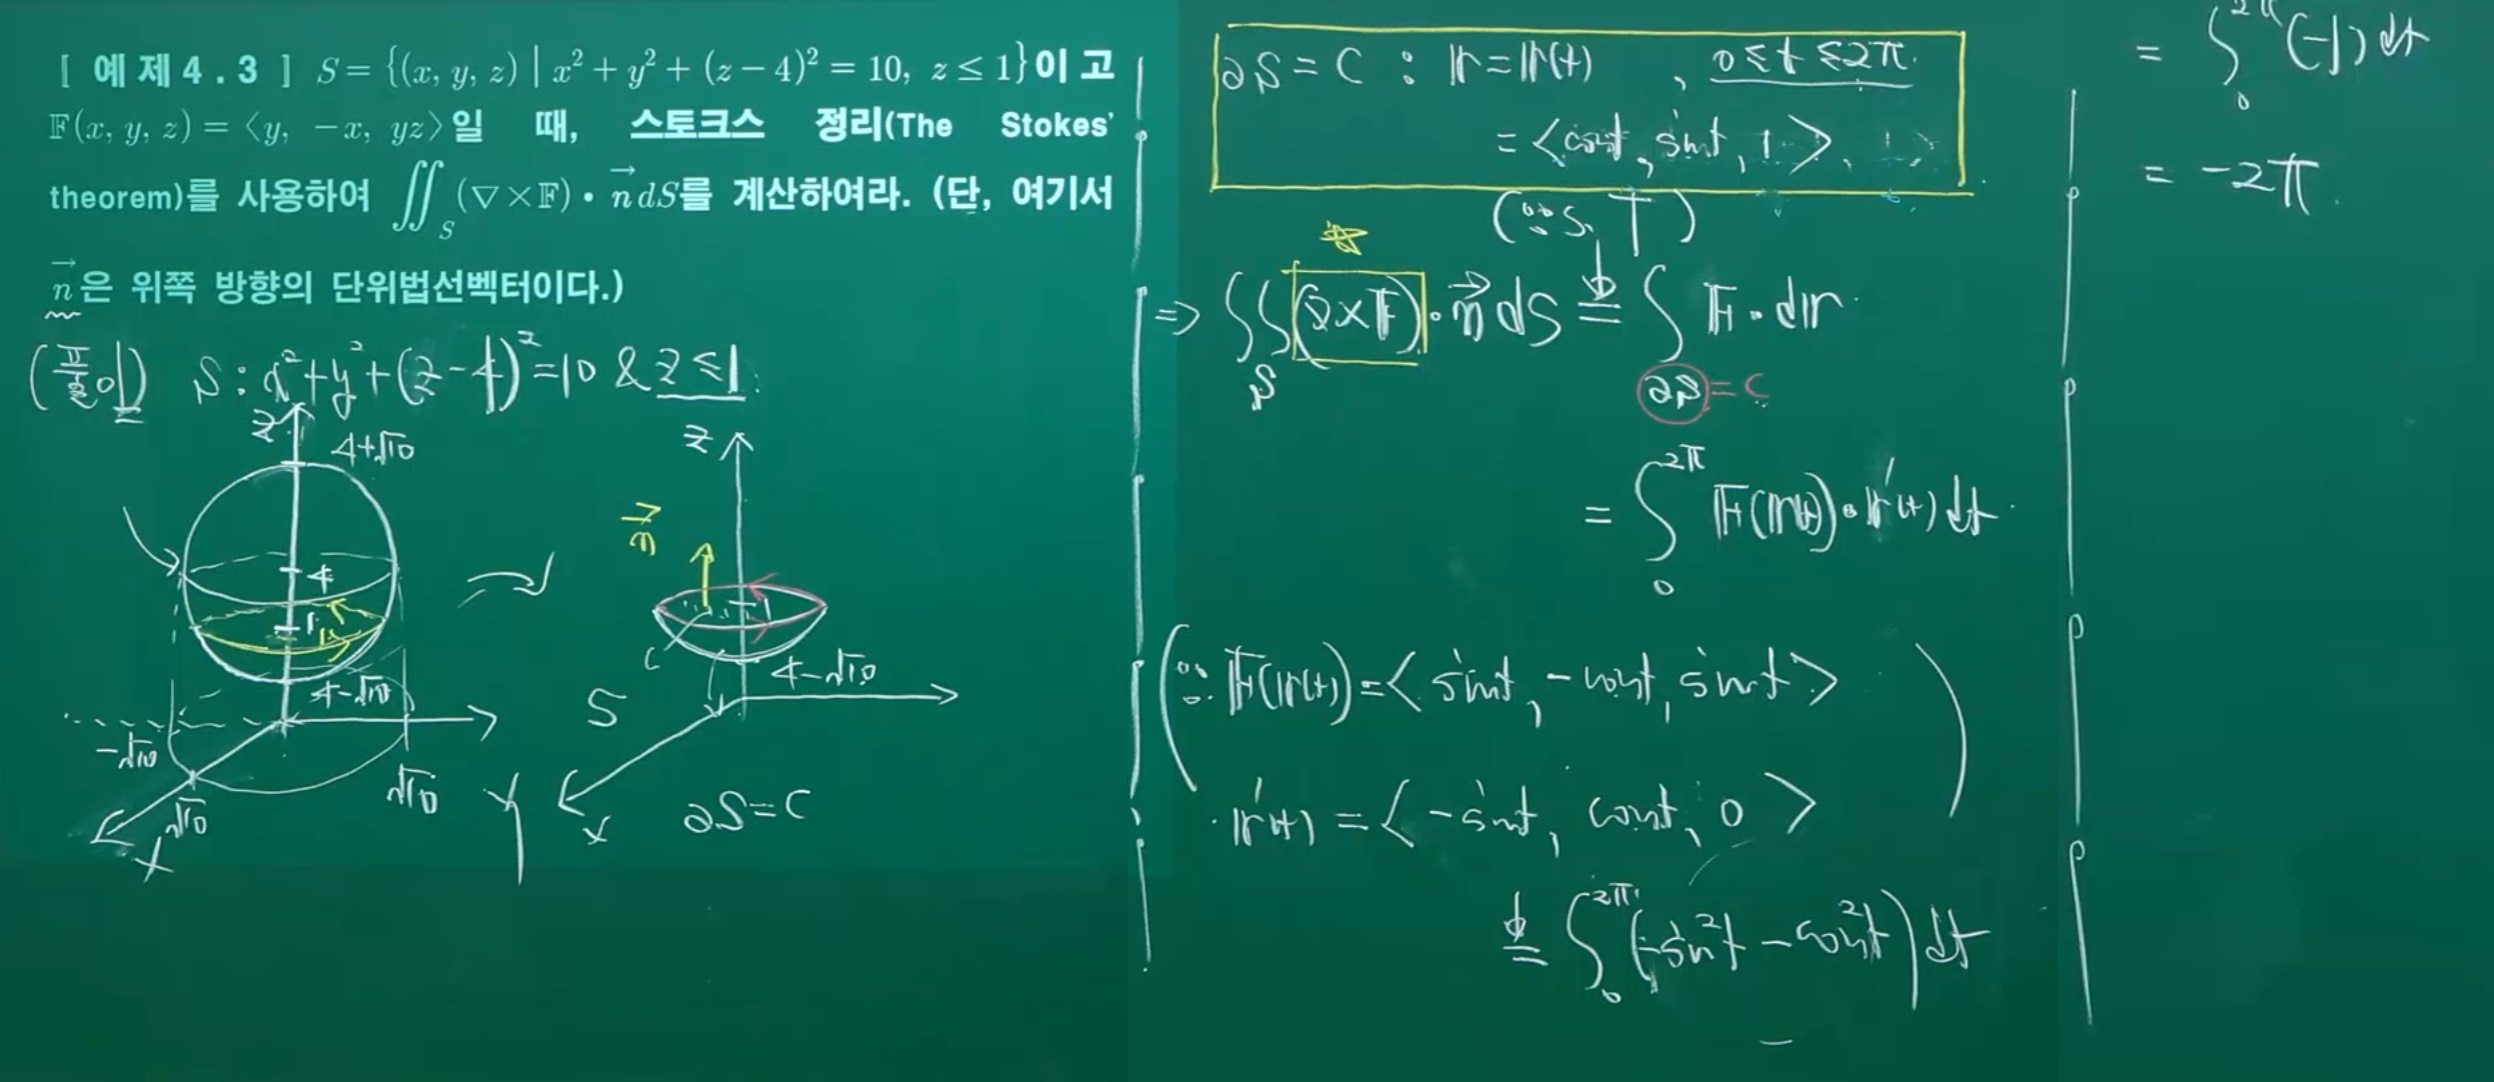 [ 예 제 4 . 3 ] S = {(x, y, z) | x² + y² + (z − 4)² = 10, z ≤ 1}이 고
𝔽(x, y, z) = ⟨y, −x, yz⟩일 때, 스토크스 정리(The Stokes'
theorem)를 사용하여 ∬_S (∇×𝔽)• n⃗ dS를 계산하여라. (단, 여기서
n⃗은 위쪽 방향의 단위법선벡터이다.)
(풀이) S : x²+y²+(z−4)²=10 & z≤1.
z
4+√10
4
1
4−√10
−√10
√10
√10
x
y
z
n⃗
1
C
4−√10
S
x
∂S=C
∂S = C : 𝕣=𝕣(t) , 0≤t≤2π.
= <cost, sint, 1>
(∵ S. T)
=> ∬_S (∇×𝔽)•n⃗ dS = ∫_{∂S=C} 𝔽•d𝕣.
= ∫_0^{2π} 𝔽(𝕣(t))•𝕣'(t) dt.
(∵ 𝔽(𝕣(t)) = < sint, −cost, sint >
• 𝕣'(t) = < −sint, cost, 0 > )
= ∫_0^{2π} (−sin²t − cos²t) dt
= ∫_0^{2π} (−1) dt
= −2π.